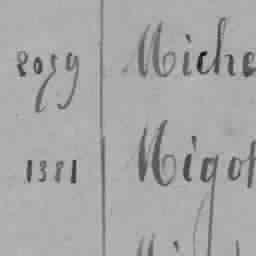 2059 Miche
1381 Migot